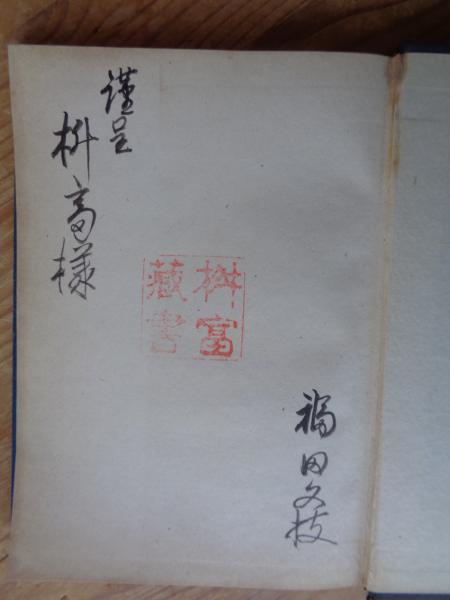 謹呈
枡富様
桝富
藏書
福田文枝